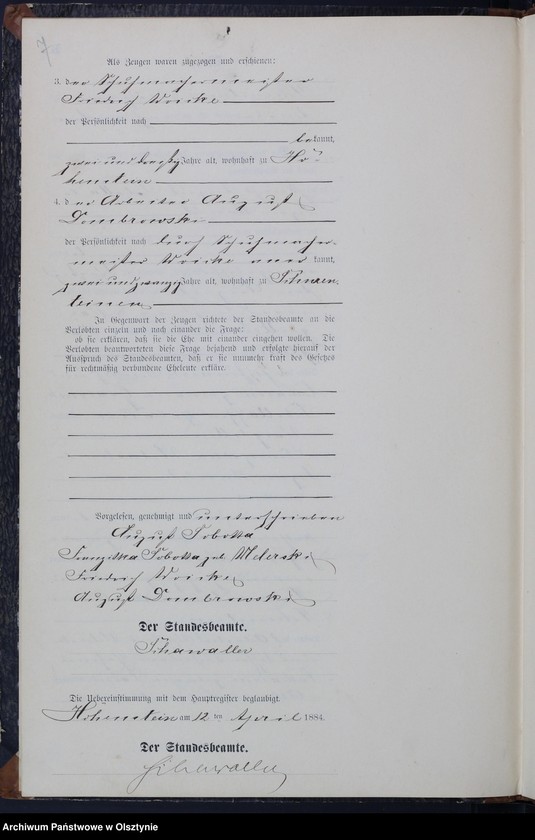 7
Als Zeugen waren zugezogen und erschienen:
3. der Schuhmachermeister
Friedrich Woicke
der Persönlichkeit nach
bekannt,
zweiunddreißig Jahre alt, wohnhaft zu Ho-
henstein
4. der Arbeiter August
Dombrowski
der Persönlichkeit nach durch Schuhmacher-
meister Woicke anerkannt,
zweiundzwanzig Jahre alt, wohnhaft zu
In Gegenwart der Zeugen richtete der Standesbeamte an die
Verlobten einzeln und nach einander die Frage:
ob sie erklären, daß sie die Ehe mit einander eingehen wollen. Die
Verlobten beantworteten diese Frage bejahend und erfolgte hierauf der
Ausspruch des Standesbeamten, daß er sie nunmehr kraft des Gesetzes
für rechtmäßig verbundene Eheleute erkläre.
Vorgelesen, genehmigt und unterschrieben
August Sobotta
Franziska Sobotta geb.
Friedrich Woicke
August Dombrowski
Der Standesbeamte.
Schawaller
Die Uebereinstimmung mit dem Hauptregister beglaubigt.
Hohenstein am 12 ten April 1884.
Der Standesbeamte.
Schawaller
Archiwum Państwowe w Olsztynie